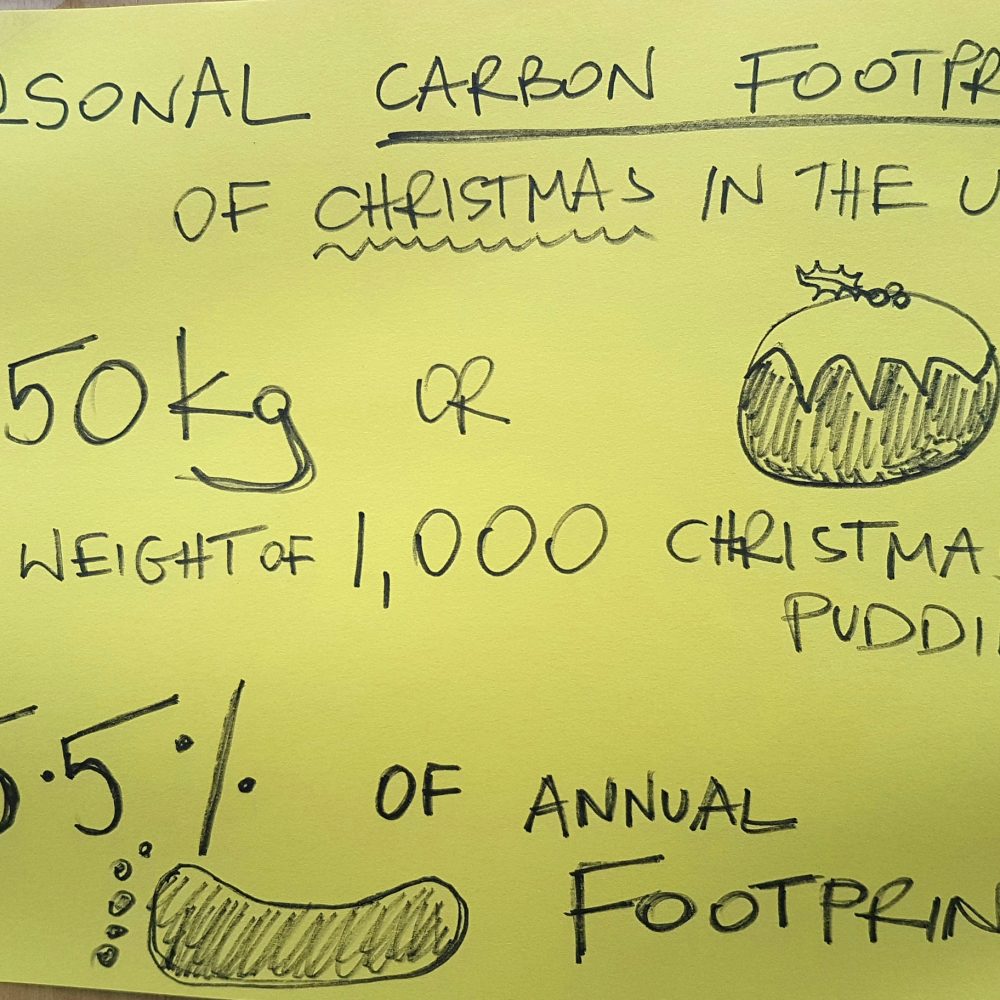 RSONAL CARBON FOOTPR
OF CHRISTMAS IN THE U
50kg OR
WEIGHT OF 1,000 CHRISTMA
PUDDI
5.5% OF ANNUAL
FOOTPRIN